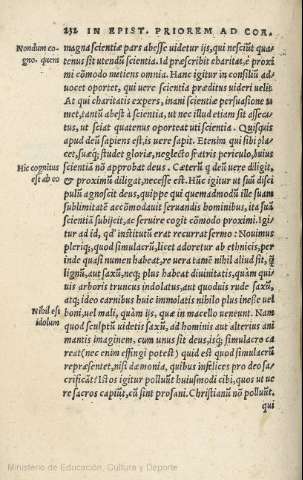 232 IN EPIST. PRIOREM AD COR.
Nondum co-
gno. quena
magna scientiæ pars abesse uidetur ijs, qui nesciũt qua-
tenus sit utendũ scientia. Id præscribit charitas, è proxi
mi cõmodo metiens omnia. Hanc igitur in consiliũ ad-
uocet oportet, qui uere scientia præditus uideri uelit.
At qui charitatis expers, inani scientiæ persuasione tu
met, tantũ abest à scientia, ut nec illud etiam sit assecu-
tus, ut sciat quatenus oporteat uti scientia. Quisquis
apud deũ sapiens est, is uere sapit. Etenim qui sibi pla-
cet, suæq; studet gloriæ, neglecto fratris periculo, huius
Hic cognitus
est ab eo
scientiã nõ approbat deus. Cæterũ q̃ deũ uere diligit,
& proximũ diligat, necesse est. Hũc igitur ut suũ disci
pulũ agnoscit deus, quippe qui quemadmodũ ille suam
sublimitatẽ accõmodauit seruandis hominibus, ita suã
scientiã subijcit, ac seruire cogit cõmodo proximi. Igi-
tur ad id, qd' institutũ erat recurrat sermo: Nouimus
pleriq;, quod simulacrũ, licet adoretur ab ethnicis, per
inde quasi numen habeat, re uera tamẽ nihil aliud sit, q̃
lignũ, aut saxũ, neq; plus habeat diuinitatis, quàm qui
uis arboris truncus indolatus, aut quoduis rude saxũ,
atq; ideo carnibus huic immolatis nihilo plus inesse uel
Nihil est
idolum
boni, uel mali, quàm ijs, quæ in macello ueneunt. Nam
quod sculptũ uidetis saxũ, ad hominis aut alterius ani
mantis imaginem, cum unus sit deus, isq; simulacro ca
reat (nec enim effingi potest) quid est quod simulacrũ
repræsentet, nisi dæmonia, quibus infelices pro deo sa-
crificãt? Istos igitur polluũt huiusmodi cibi, quos ut ue
re sacros capiũt, cũ sint profani. Christianũ nõ polluũt,
qui
Ministerio de Educación, Cultura y Deporte